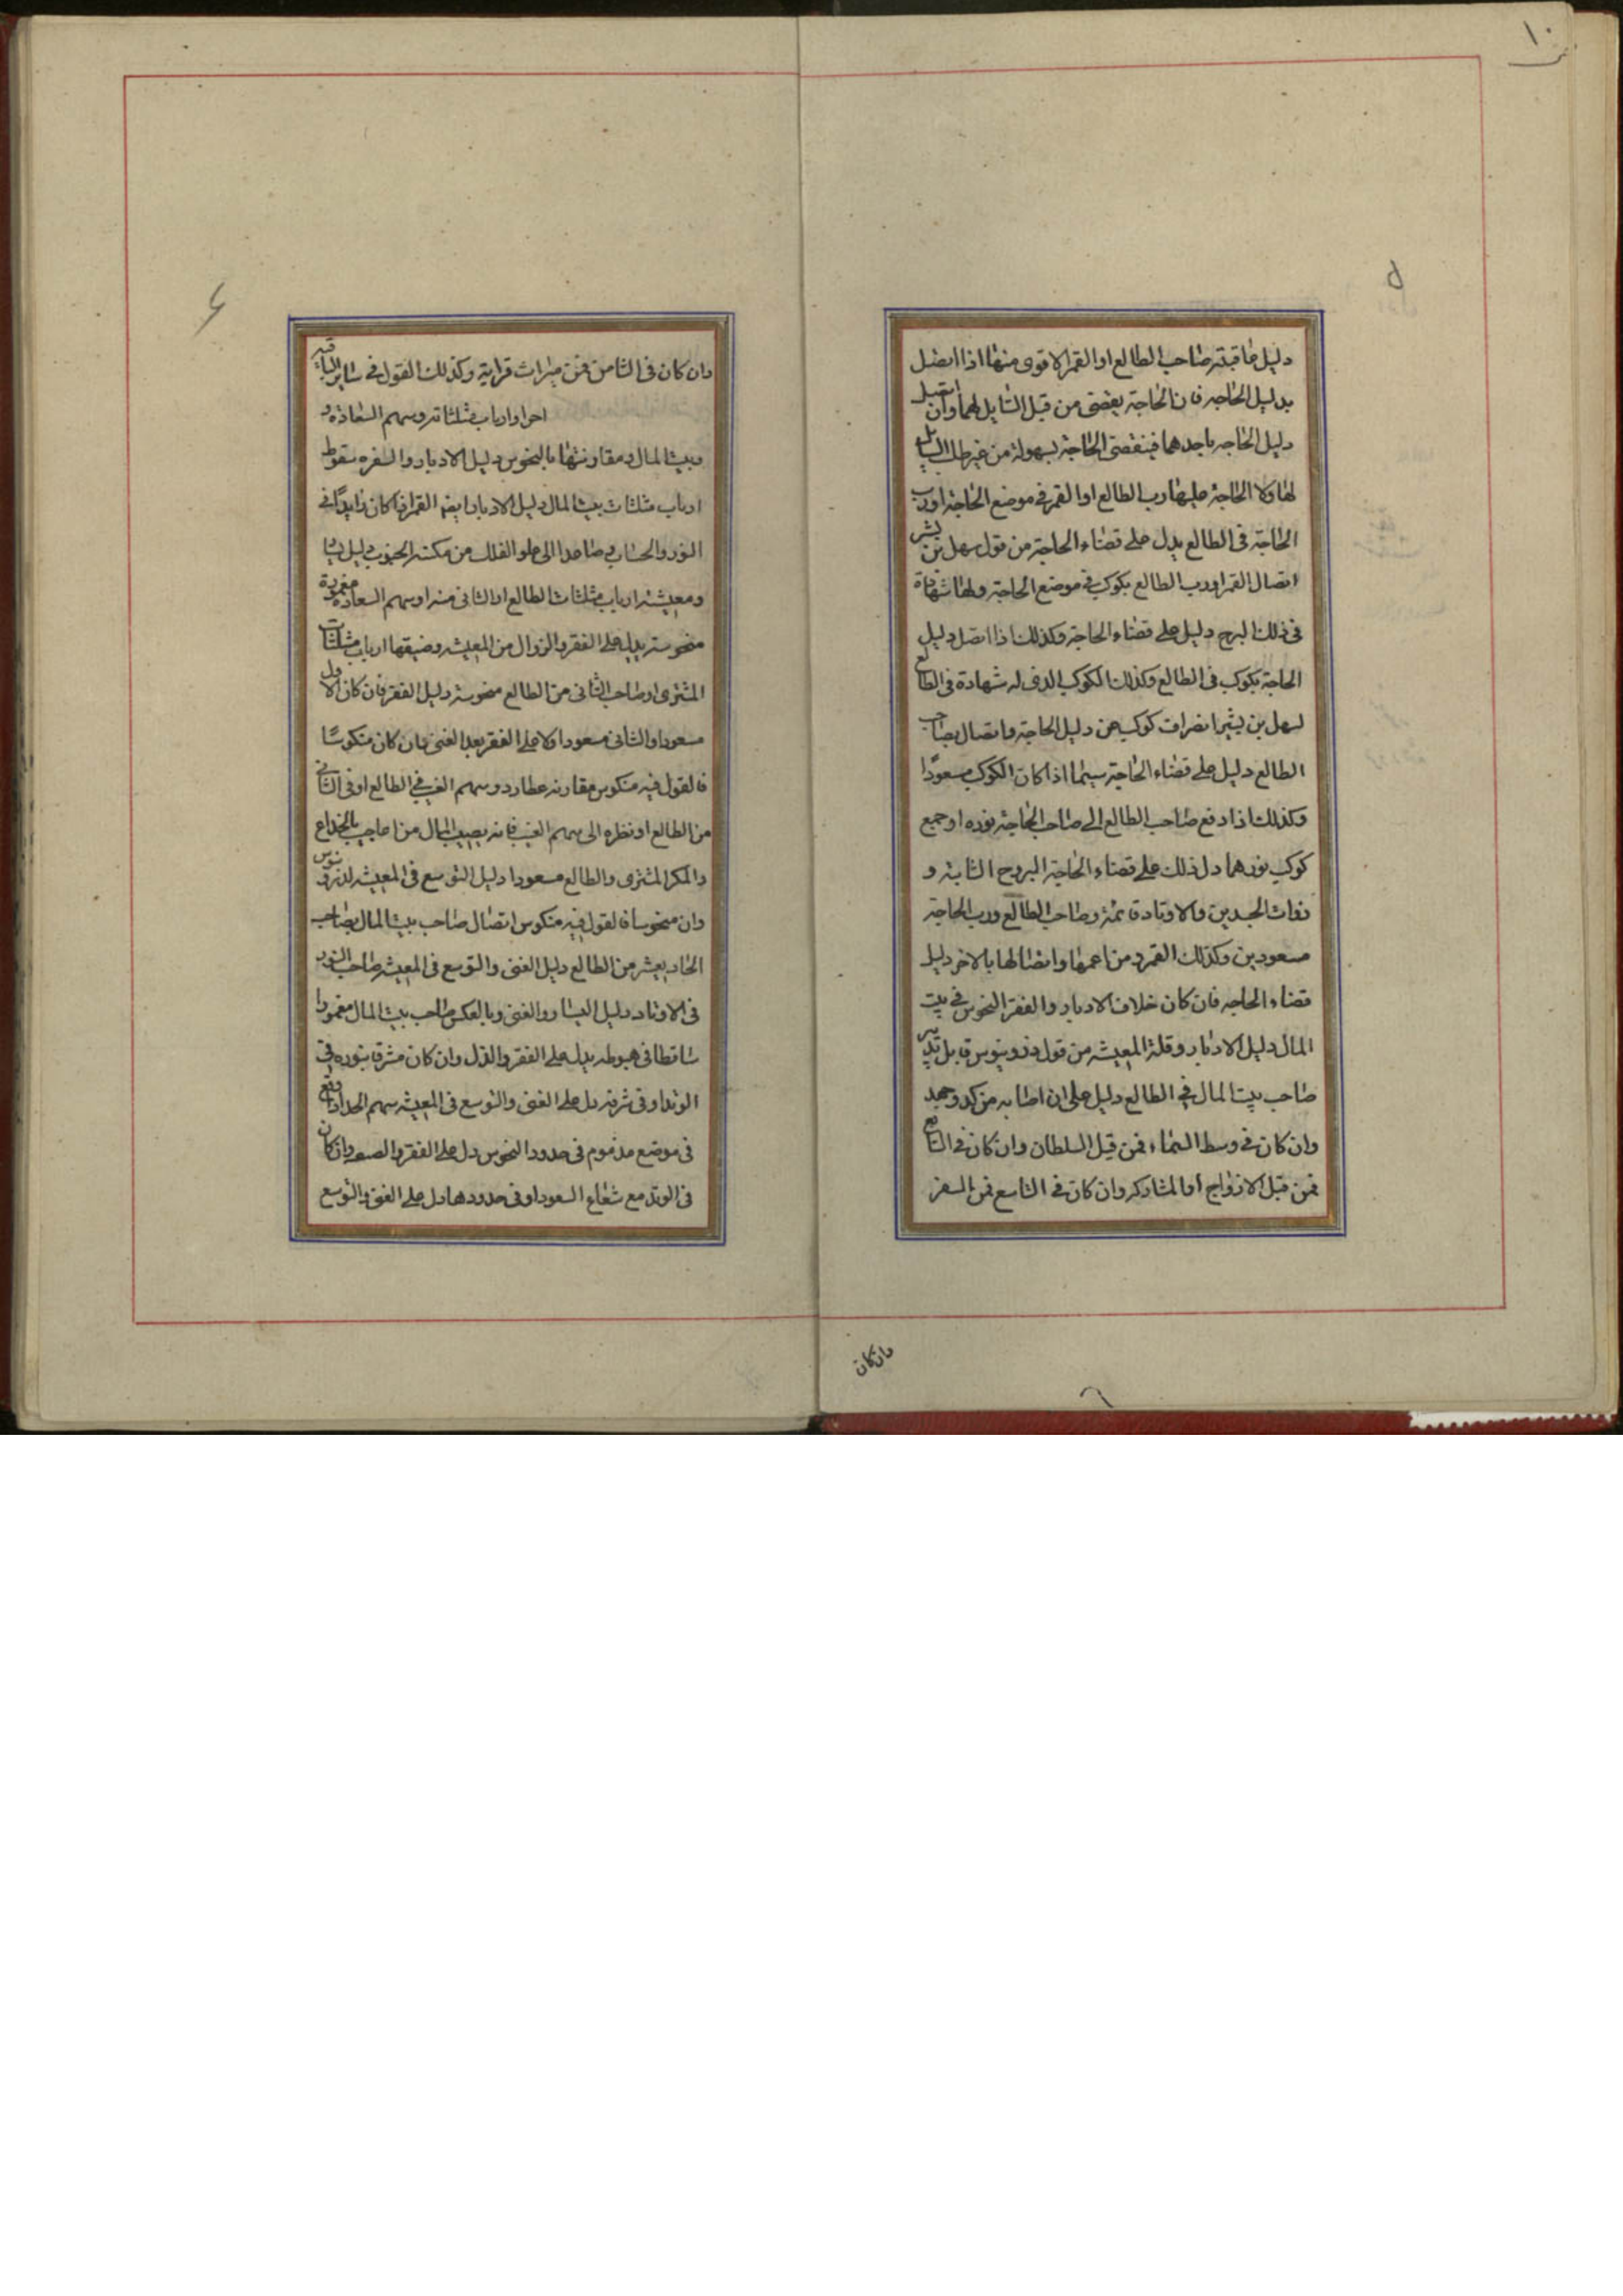 ١٠
٥
دليل عاقبته صاحب الطالع او القمر الاقوى منهما اذا اتصل
بدليل الحاجه فان الحاجة يقضى من قبل السايل لهما وان اتصل
دليل الحاجه باحدهما فينقضى الحاجة بسهولة من غير طلب السايل
لها ولا الحاجة عليها رب الطالع او القمر في موضع الحاجة اورب
الحاجة فى الطالع يدل على قضاء الحاجة من قول سهل بن بشر
اتصال القمر اورب الطالع بكوكب في موضع الحاجة ولها شهادة
فى ذلك البرج دليل على قضاء الحاجة وكذلك اذا اتصل دليل
الحاجة بكوكب فى الطالع وكذلك الكوكب الذى له شهادة فى الطالع
لسهل بن بشر انصراف كوكب عن دليل الحاجة واتصال بصاحب
الطالع دليل على قضاء الحاجة سيما اذا كان الكوكب مسعودًا
وكذلك اذا دفع صاحب الطالع الى صاحب الحاجة نوره او جمع
كوكب نورهما دل ذلك على قضاء الحاجة البروج الثابتة و
ذوات الجسدين والاوتاد قائمة وصاحب الطالع ورب الحاجة
مسعودين وكذلك القمر من اعمها واتصالها بالاخر دليل
قضاء الحاجه فان كان خلاف الادبار والفقر النحوس في بيت
المال دليل الادبار وقلة المعيشه من قول ذورنيوس قابل تدبير
صاحب بيت المال في الطالع دليل على ان اصابه من كد وجهد
وان كان في وسط السماء فمن قبل السلطان وان كان في السابع
فمن قبل الازواج او المشاركه وان كان في التاسع فمن السفر
وان كان
٦
وان كان فى الثامن فمن ميراث قرابة وكذلك القول في ساير الباقيه
احوا وارباب مثلثاته وسهم السعادة و
وبيت المال ومقارنتها بالنحوس دليل الادبار والسفره سقوط
ارباب مثلثات بيت المال دليل الادبار ايضا القمر اذا كان زايدًا في
النور والحساب صاعدا الى علو الفلك من مكنه الجنوب دليل
ومعيشته ارباب مثلثات الطالع او الثانى منه او سهم السعادة مغمودة
منحوسة يدل على الفقر والزوال من المعيشه وضيقها ارباب مثلثات
المشترى او صاحب الثانى من الطالع منحوسة دليل الفقر فان كان الاول
مسعودا والثانى مسعودا ولا على الفقر بعد الغنى فان كان منكوسًا
فالقول فيه منكوس مقارنه عطارد وسهم الغيب في الطالع او فى الثانى
من الطالع او نظره الى سهم الغيب فانه يصيب المال من اعاجيب بالخداع
والمكر المشترى والطالع مسعودا دليل التوسع فى المعيشه لذورنيوس
وان منحوسا فالقول فيه منكوس اتصال صاحب بيت المال بصاحب
الحاديعشر من الطالع دليل الغنى والتوسع فى المعيشه صاحب النور
فى الاوتاد دليل اليسار والغنى وبالعكس صاحب بيت المال مغمودا
ساقطا فى هبوطه يدل على الفقر والذل وان كان مشرقا بنوره في
الوتد او فى شرفه دل على الغنى والتوسع فى المعيشه سهم الحد اذا وقع
فى موضع مذموم فى حدود النحوس دل على الفقر والصعود وان كان
فى الوتد مع شعاع السعود او فى حدودها دل على الغنى والتوسع